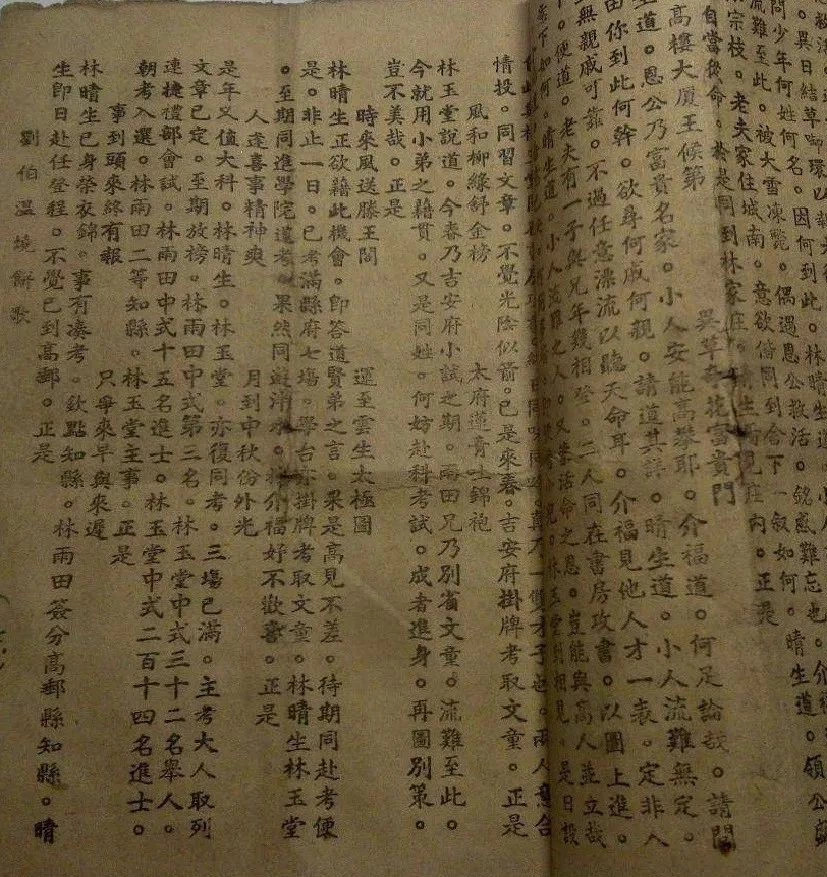 。異日結草啣環以報
問少年何姓何名。因何到此。林晴生道。小人
流難至此。被大雪凍斃。偶遇恩公救活。銘感難忘也。介福
宗枝。老夫家住城南。意欲偕同到舍下一叙如何。晴生道。領公
自當從命。於是同到林家庄。晴生看見庄內。正是
高樓大厦王候第　異草奇花富貴門
生道。恩公乃富貴名家。小人安能高攀耶。介福道。何足論哉。請問
由你到此何幹。欲尋何戚何親。請道其詳。晴生道。小人流難無定。
無親戚可靠。不過任意漂流以聽天命耳。介福見他人才一表。定非人
下。便道。老夫有一子與兄年幾相登。二人同在書房攻書。以圖上進。
意下如何。晴生道。小人流難之人。又蒙活命之恩。豈能與高人並立哉
林玉堂相見。是日設
真乃一雙才子也。兩人意合
情投。同習文章。不覺光陰似箭。已是來春。吉安府掛牌考取文童。正是
風和柳綠舒金榜　太府蓮青吐錦袍
林玉堂說道。今春乃吉安府小試之期。雨田兄乃別省文童。流難至此。
今就用小弟之籍貫。又是同姓。何妨赴科考試。成者進身。再圖別策。
豈不美哉。正是
時來風送滕王閣　運至雲生太極圖
林晴生正欲藉此機會。即答道賢弟之言。果是高見不差。待期同赴考便
是。非止一日。已考滿縣府七塲。學台亦掛牌考取文童。林晴生林玉堂
。至期同進學院道考。果然同遊泮水。林介福好不歡喜。正是
人逢喜事精神爽　月到中秋份外光
是年又值大科。林晴生。林玉堂。亦復同考。三塲已滿。主考大人取列
文章已定。至期放榜。林雨田中式第三名。林玉堂中式三十二名舉人。
連捷禮部會試。林雨田中式十五名進士。林玉堂中式二百十四名進士。
朝考入選。林雨田二等知縣。林玉堂主事。正是
事到頭來終有報　只爭來早與來遲
林晴生已身榮衣錦。事有凑考。欽點知縣。林雨田簽分高郵縣知縣。晴
生即日赴任登程。不覺已到高郵。正是
劉伯温燒餅歌